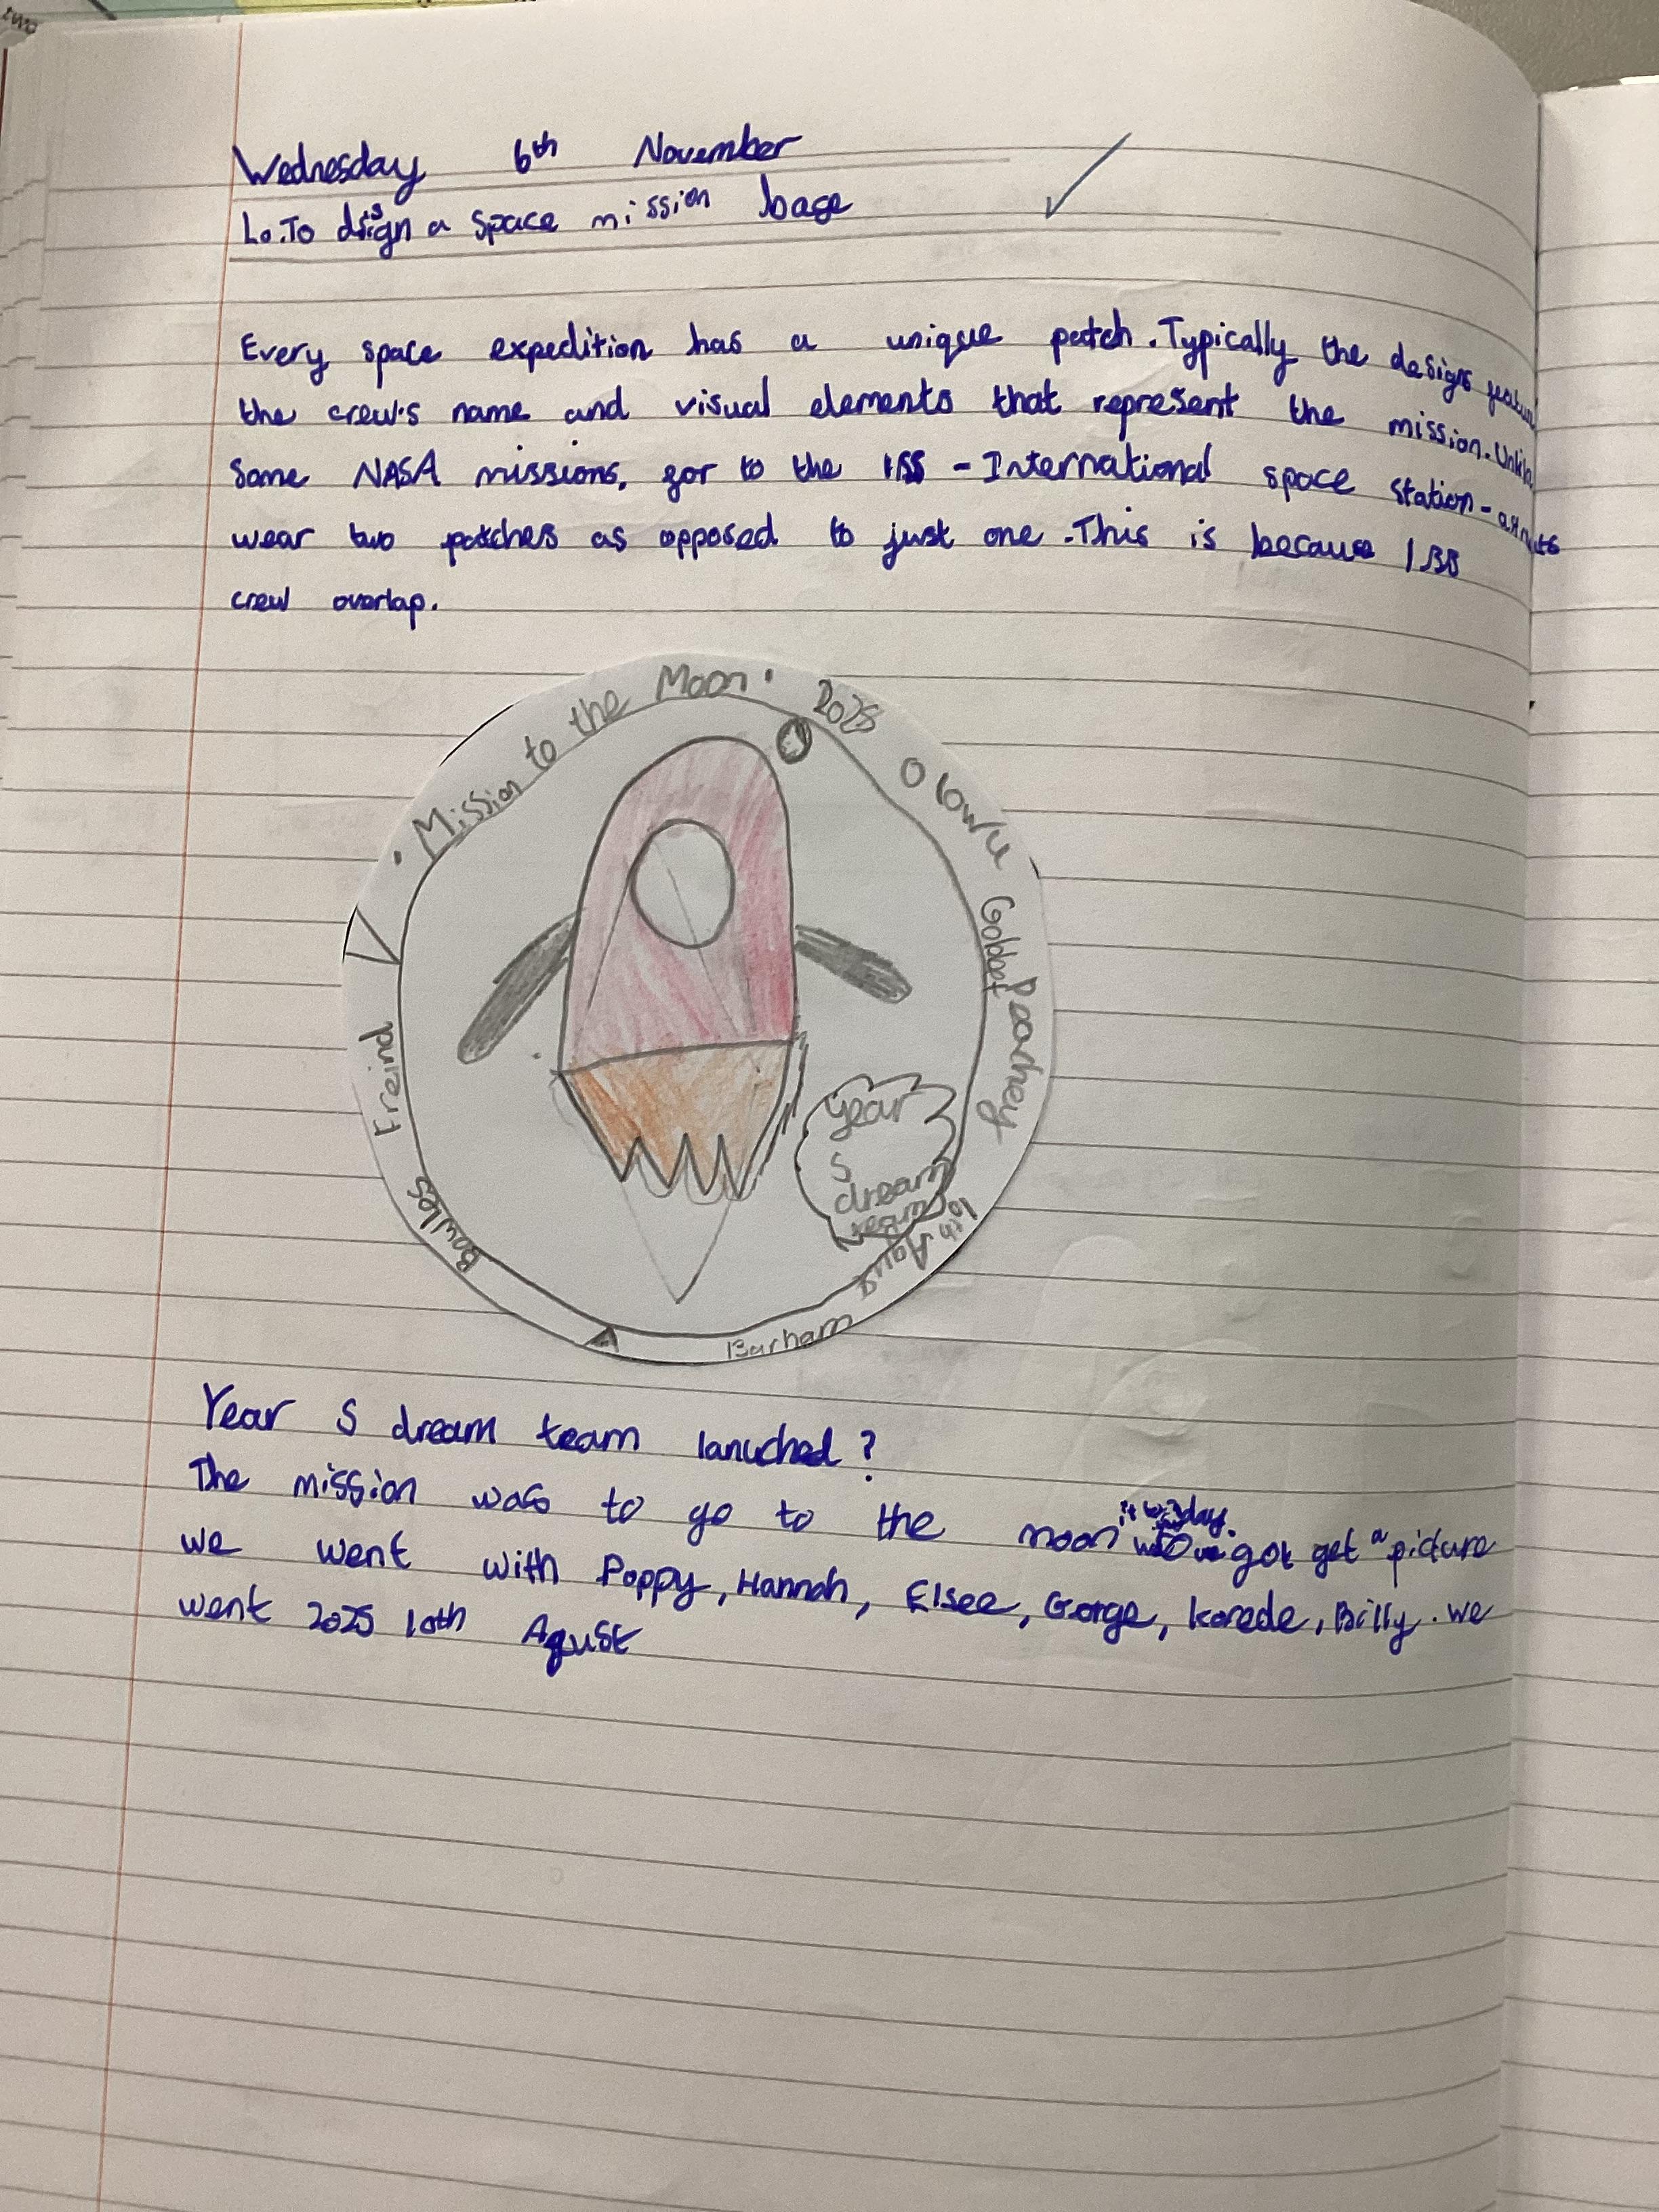 two
Wednesday 6th November
Lo.To design a space mission bage
Every space expedition has a unique patch. Typically the designs featur
the crew's name and visual elements that represent the mission. Unlike
some NASA missions, for to the ISS - International space station -
wear two patches as opposed to just one. This is because ISS
crew overlap.
• Mission to the Moon •
2025
Olowu
Gobbet
Peachey
10th Agust
Barham
Bowles
Freind
year
5
dream
Year 5 dream team lanuched?
The mission was to go to the moon it day. got get a picture
we went with Poppy, Hannah, Elsee, Gorge, Korede, Billy. we
went 2025 10th Agust